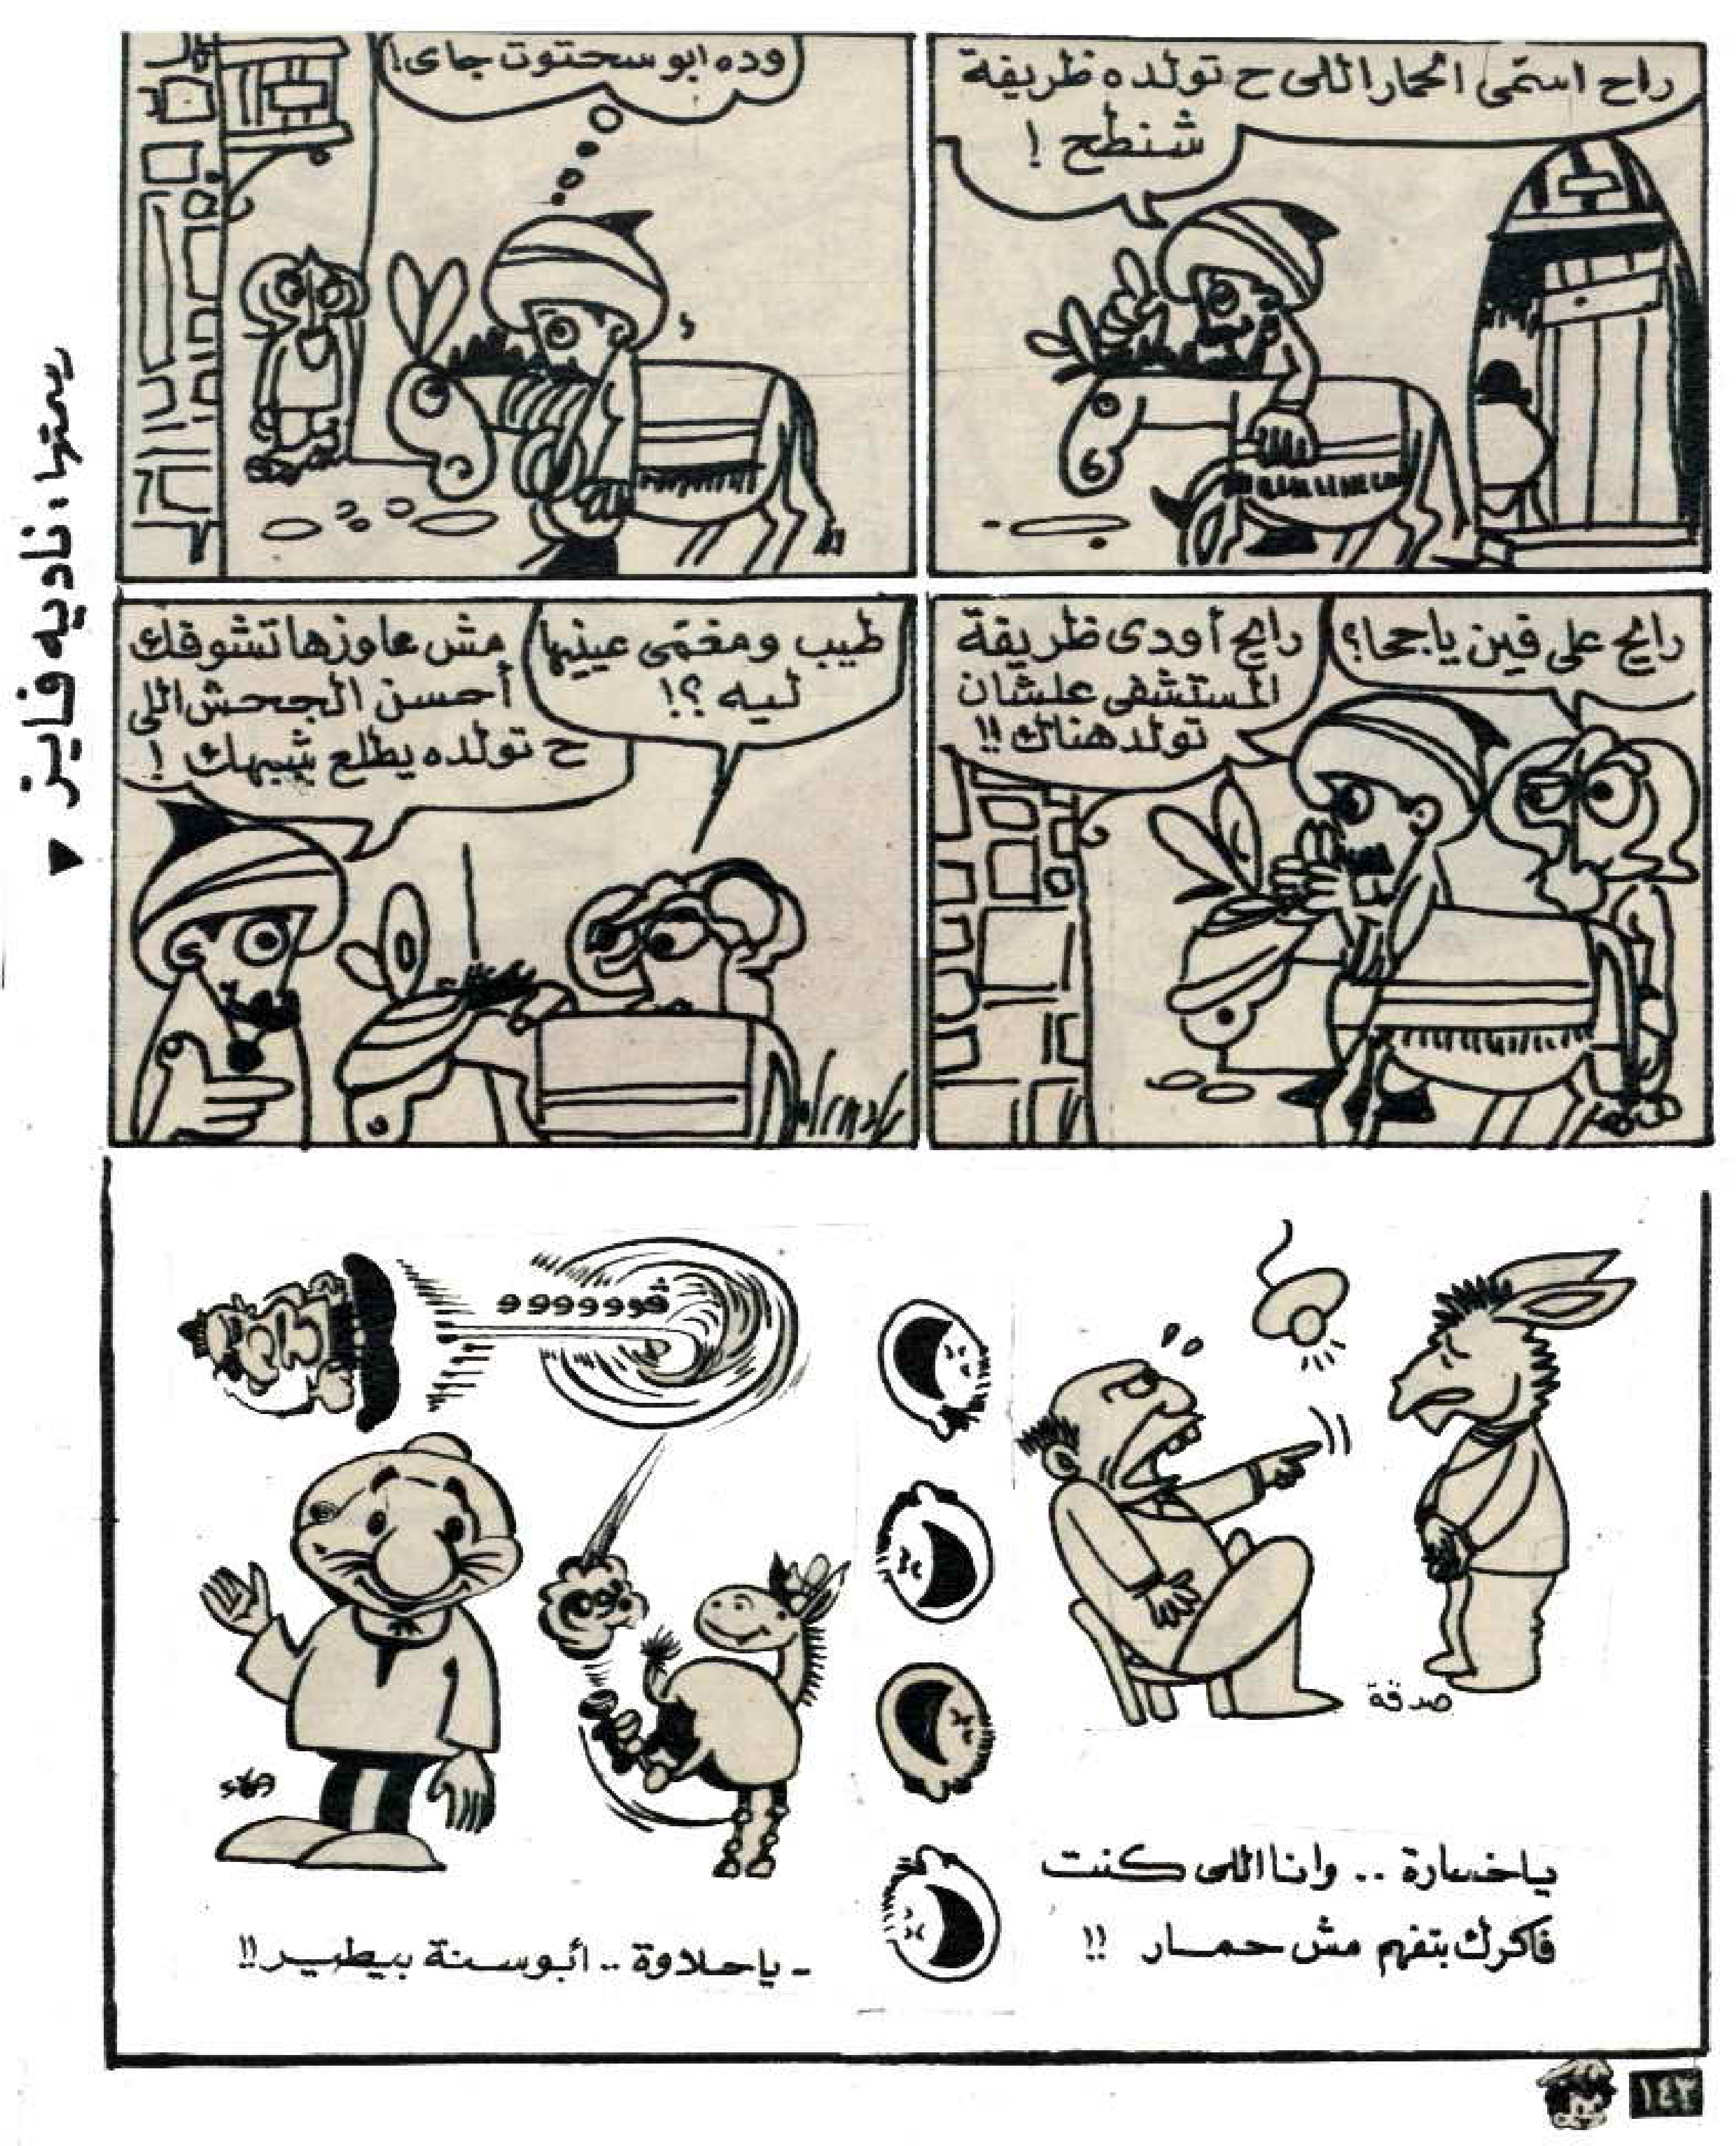 راح اسمّى الحمار اللى ح تولده ظريفة
شنطح !
وده ابو سحتوت جاى !
رايح على فين يا جحا ؟
رايح أودى ظريفة
المستشفى علشان
تولد هناك !!
طيب ومغمّى عينيها
ليه ؟!
مش عاوزها تشوفك
أحسن الجحش اللى
ح تولده يطلع شبهك !
رسمتها : ناديه فايز
شووووووو
صدقة
ياخسارة .. وانا اللى كنت
فاكرك بتفهم مش حمار !!
- ياحلاوة .. أبوسنة بيطير !!
١٤٣